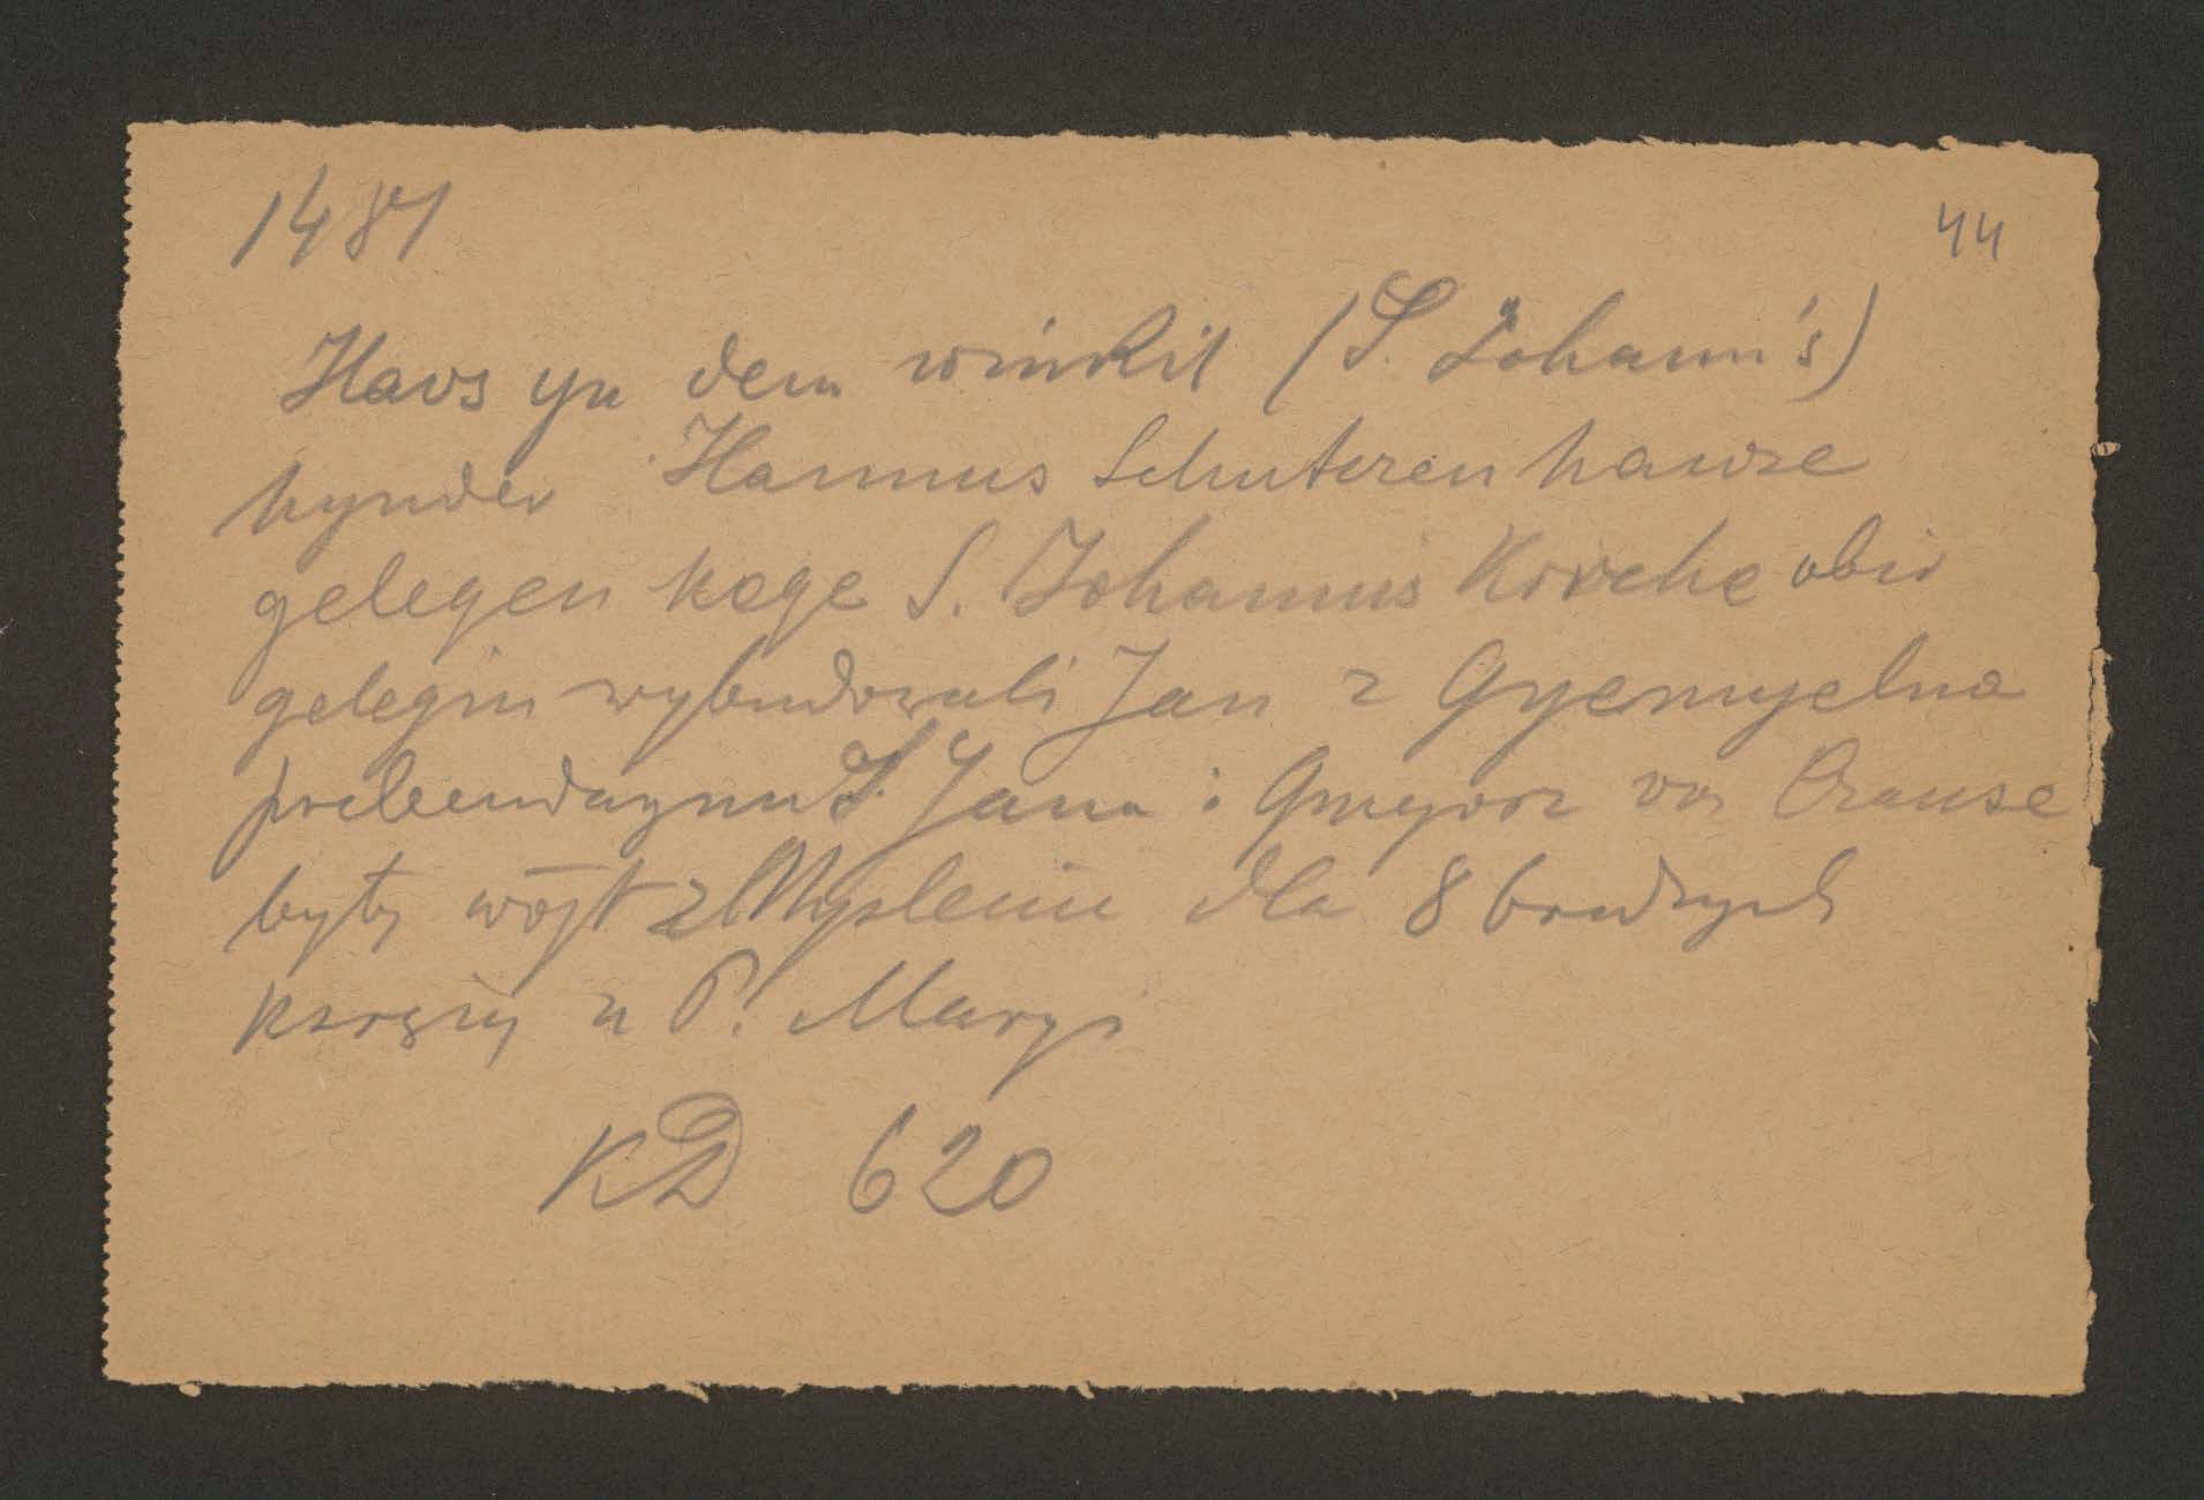 1481
44
Havs yn dem winkil (S. Johann's)
hynder Hannus Schuteren hawse
gelegen kege S. Johannis Kirche obir
gelegin wybudowali Jan z Gyemyelna
prebendarz S. Jana i Grzegorz von Crause
były wójt z Myślenic dla 8
księży u P. Maryi
KD 620